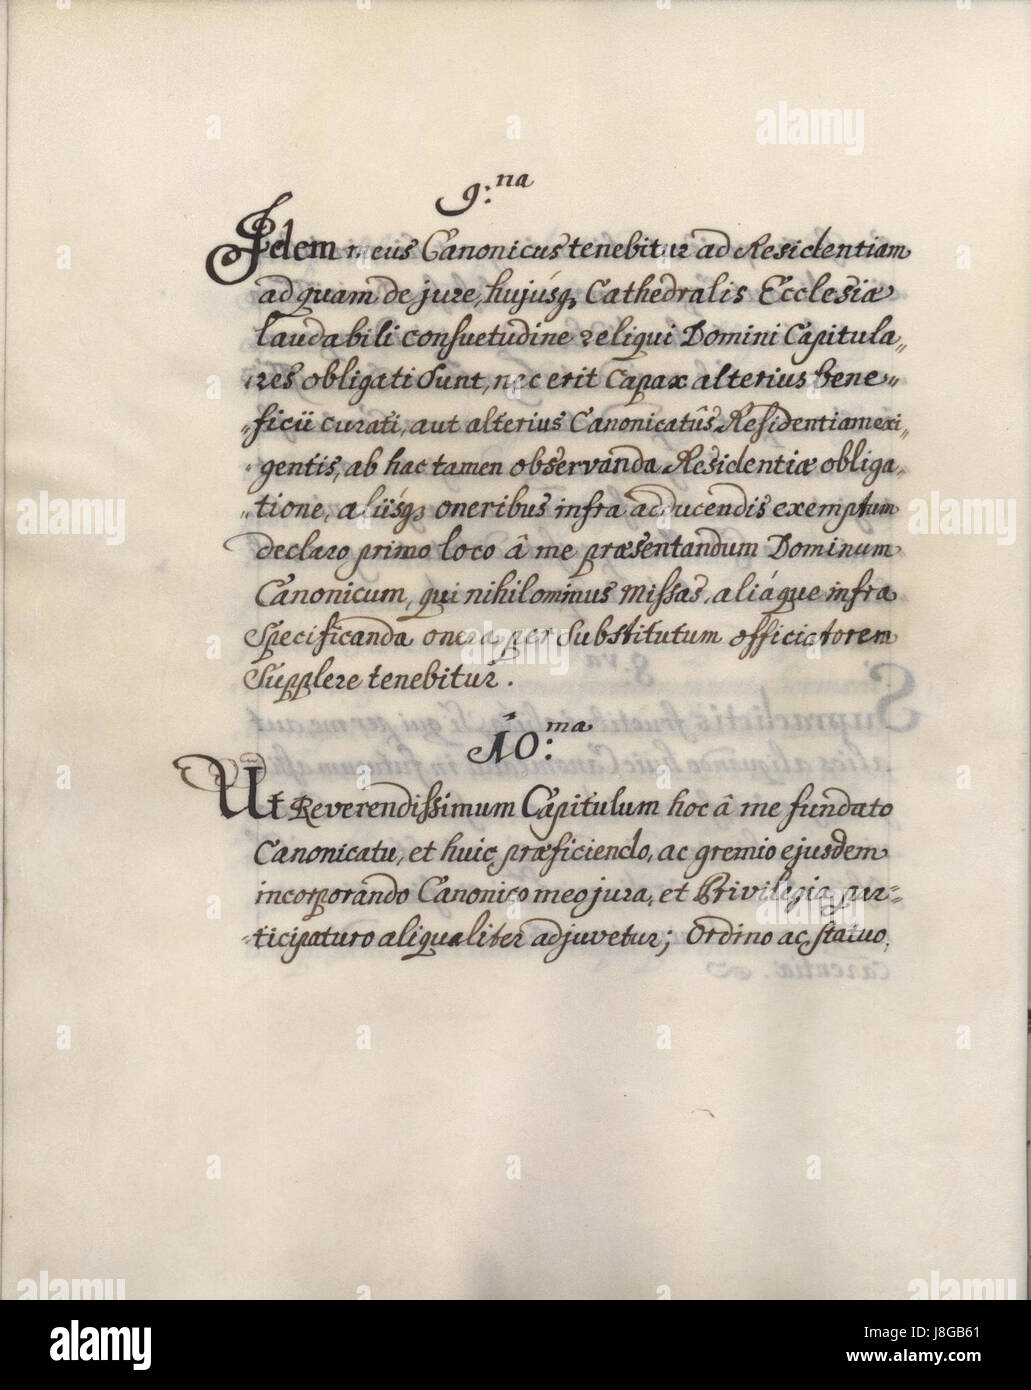 9:na
Idem meus Canonicus tenebitur ad Residentiam
ad quam de jure, hujusq3 Cathedralis Ecclesiæ
laudabili consuetudine reliqui Domini Capitula„
res obligati Sunt, nec erit Capax alterius bene„
„ficii curati, aut alterius Canonicatûs Residentiam exi„
gentis, ab hac tamen observanda Residentiæ obliga„
„tione, aliisq3 oneribus infra adducendis exemptum
declaro primo loco â me præsentandum Dominum
Canonicum, qui nihilominus Missas, aliáque infra
Specificanda onera per Substitutum officiatorem
Supplere tenebitur.
10:ma
Ut Reverendissimum Capitulum hoc â me fundato
Canonicatu, et huic præficiendo, ac gremio ejusdem
incorporando Canonico meo jura, et Privilegia par„
„ticipaturo aliqualiter adjuvetur; Ordino ac Statuo,
8.va
Supradictis fructibus
carentiæ.
alamy
a
alamy
Image ID: J8GB61
www.alamy.com